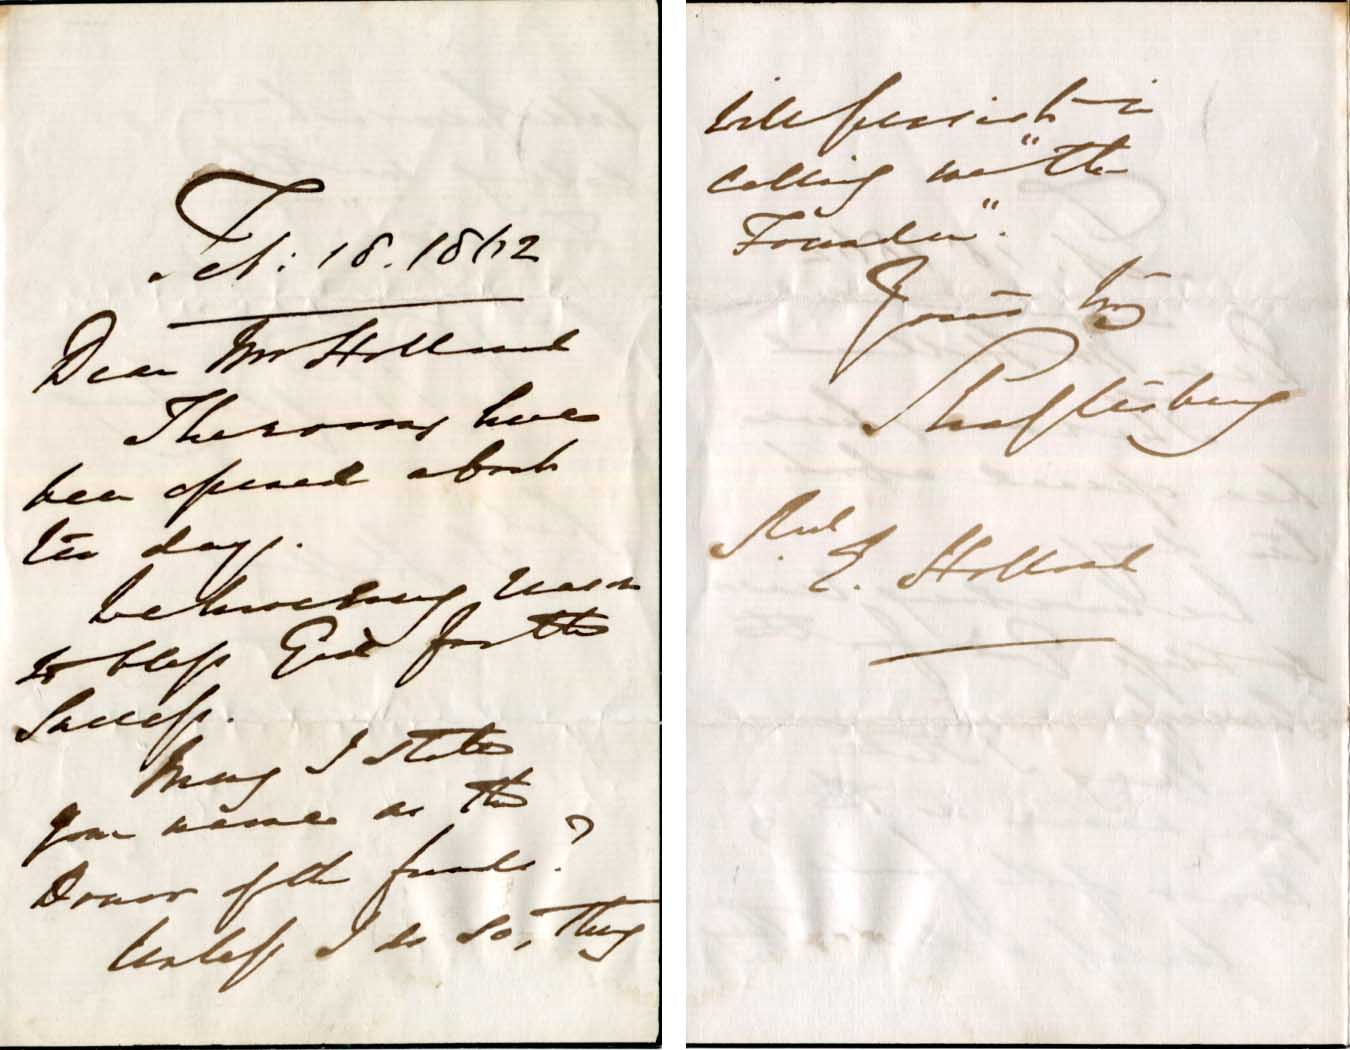 Feb: 18. 1872
Dear Mr Holland
The rooms have
been opened about
ten days.
We have every reason
to bless God for the
success.
May I state
your name as the
Donor of the funds?
Unless I do so, they
will persist in
calling me "the
Founder".
Yours truly
Shaftesbury
E. Holland